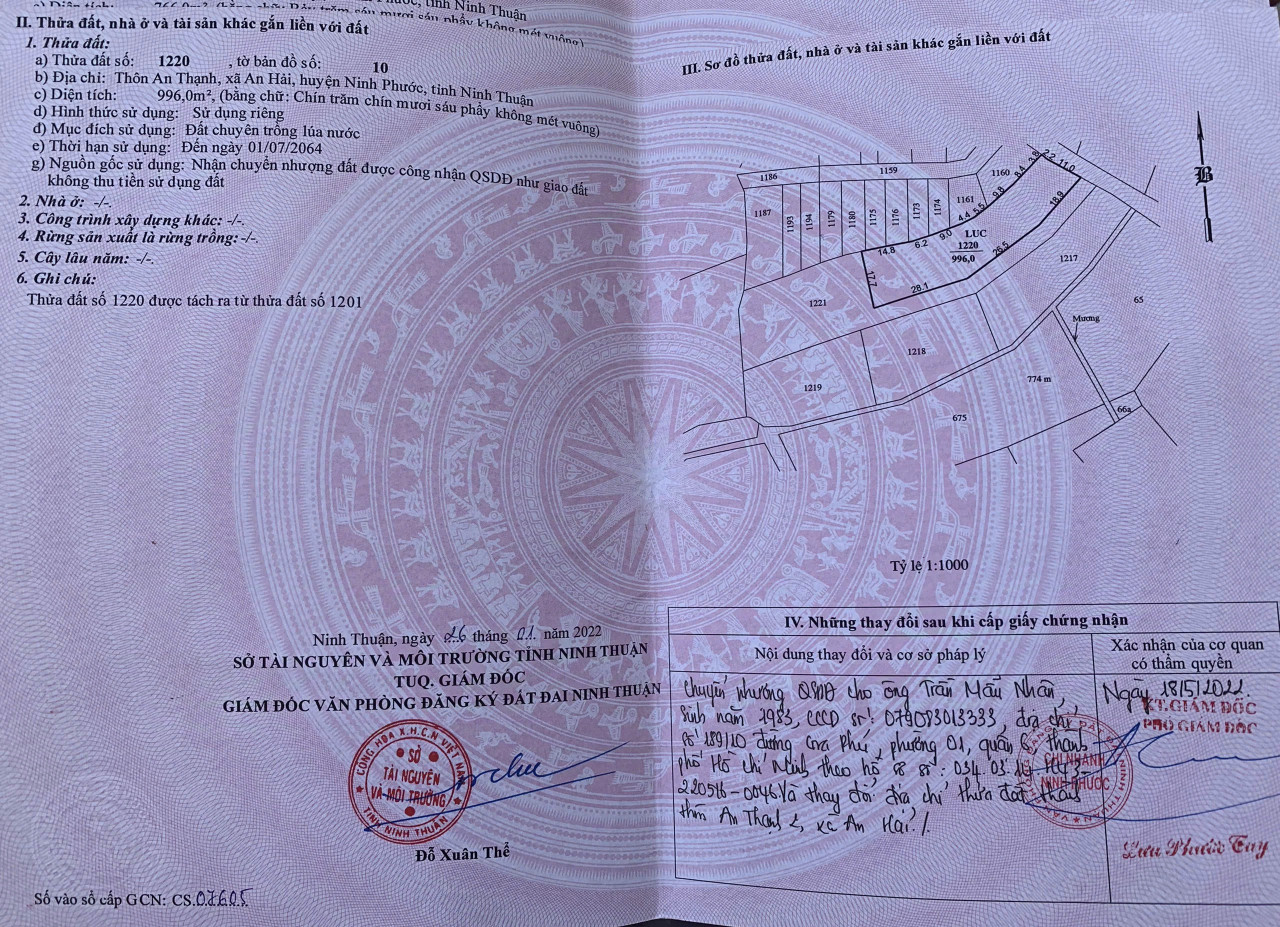 tỉnh Ninh Thuận
II. Thửa đất, nhà ở và tài sản khác gắn liền với đất
1. Thửa đất:
a) Thửa đất số: 1220 , tờ bản đồ số: 10
b) Địa chỉ: Thôn An Thạnh, xã An Hải, huyện Ninh Phước, tỉnh Ninh Thuận
c) Diện tích: 996,0m², (bằng chữ: Chín trăm chín mươi sáu phẩy không mét vuông)
d) Hình thức sử dụng: Sử dụng riêng
đ) Mục đích sử dụng: Đất chuyên trồng lúa nước
e) Thời hạn sử dụng: Đến ngày 01/07/2064
g) Nguồn gốc sử dụng: Nhận chuyển nhượng đất được công nhận QSDĐ như giao đất
không thu tiền sử dụng đất
2. Nhà ở: -/-.
3. Công trình xây dựng khác: -/-.
4. Rừng sản xuất là rừng trồng: -/-.
5. Cây lâu năm: -/-.
6. Ghi chú:
Thửa đất số 1220 được tách ra từ thửa đất số 1201
Ninh Thuận, ngày 26 tháng 01 năm 2022
SỞ TÀI NGUYÊN VÀ MÔI TRƯỜNG TỈNH NINH THUẬN
TUQ. GIÁM ĐỐC
GIÁM ĐỐC VĂN PHÒNG ĐĂNG KÝ ĐẤT ĐAI NINH THUẬN
CỘNG HÒA X.H.C.N VIỆT NAM
SỞ
TÀI NGUYÊN
VÀ MÔI TRƯỜNG
TỈNH NINH THUẬN
Đỗ Xuân Thể
Số vào sổ cấp GCN: CS.07605
III. Sơ đồ thửa đất, nhà ở và tài sản khác gắn liền với đất
B
1186
1159
1160
2.2
11.0
3.8
8.4
9.8
1187
1193
1194
1179
1180
1175
1176
1173
1174
1161
5.5
4.4
18.9
LUC
1220
996,0
9.0
6.2
14.8
26.5
17.7
28.1
1217
65
1221
Mương
1218
1219
774 m
675
66a
Tỷ lệ 1:1000
IV. Những thay đổi sau khi cấp giấy chứng nhận
Nội dung thay đổi và cơ sở pháp lý
Xác nhận của cơ quan
có thẩm quyền
Chuyển nhượng QSDĐ cho ông Trần Mẫu Nhân,
sinh năm 1983, CCCD số: 079083013333, địa chỉ
số 189/10 đường phường 01, quận 6, thành
phố Hồ Chí Minh theo hồ sơ số: 034.03.
220516-0046 Và thay đổi địa chỉ thửa đất thành
thôn An Thạnh 2, xã An Hải./.
Ngày 18/5/2022
KT.GIÁM ĐỐC
PHÓ GIÁM ĐỐC
CHI NHÁNH
NINH PHƯỚC
Lưu Phước Tay